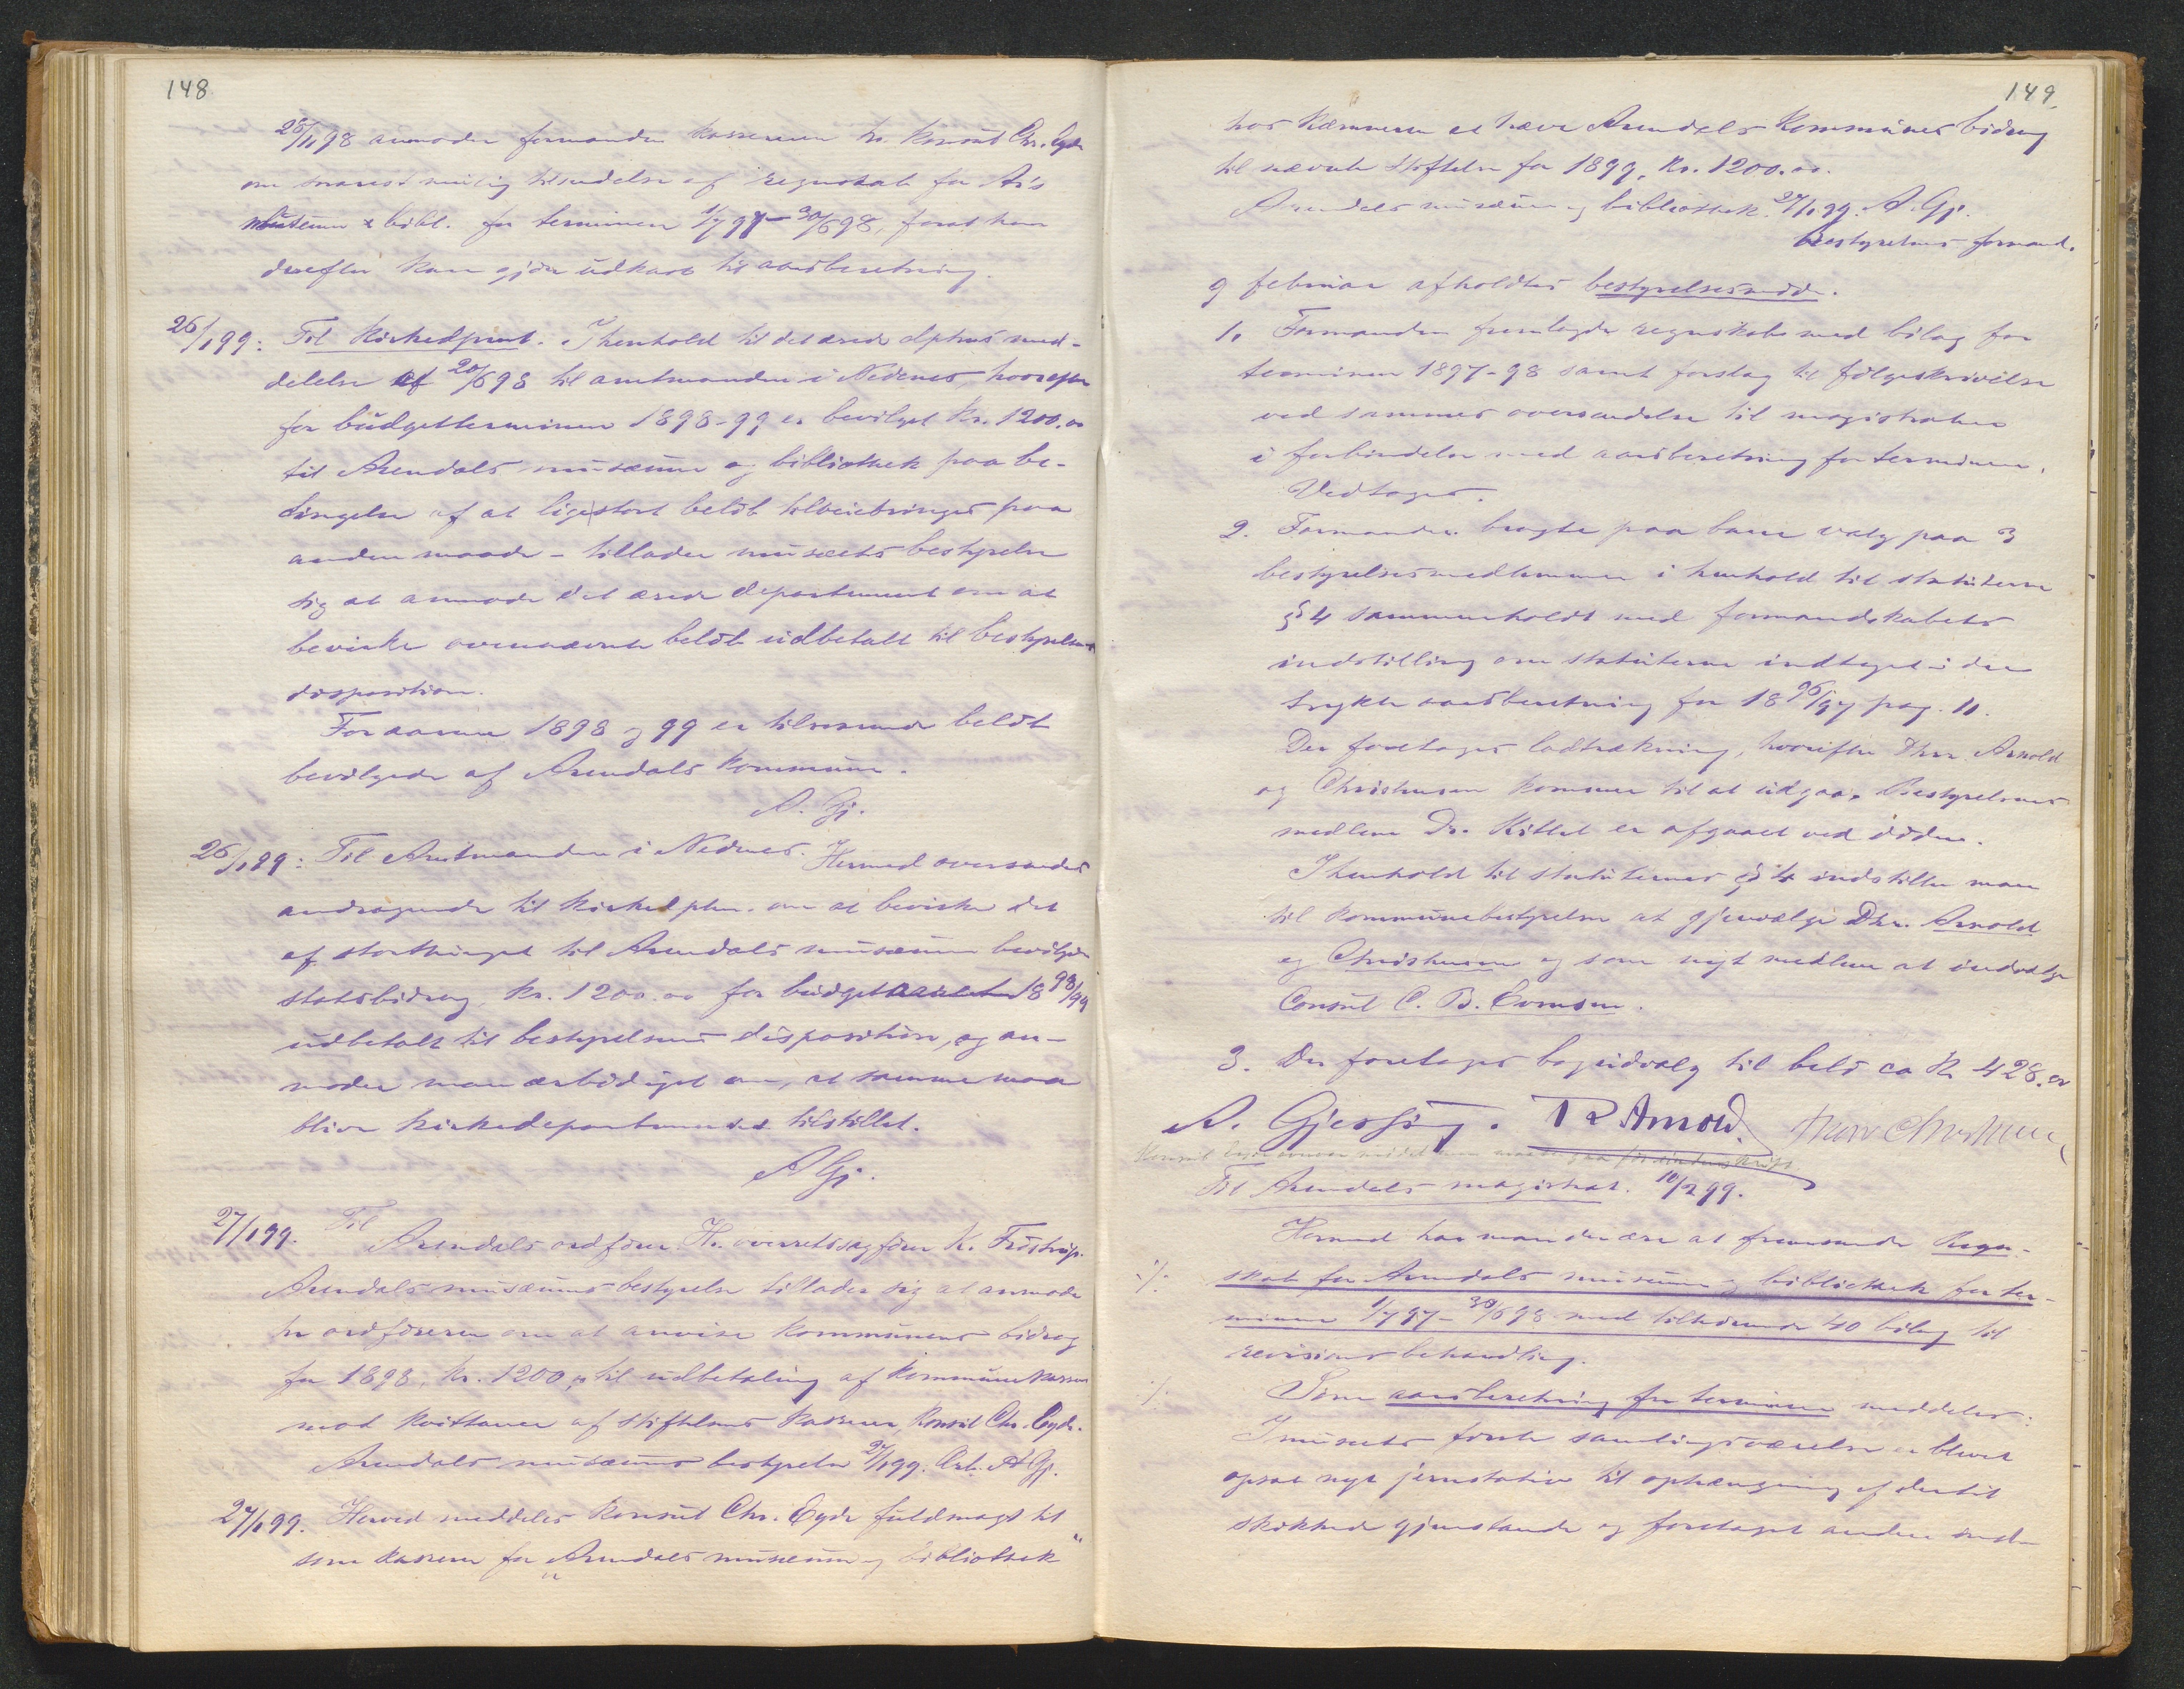 148
28/11 98 anmoder formanden kassereren hr. konsul Chr. Eyde
om snarest mulig tilsendelse af regnskab for Ar's
museum & bibl. for terminen 1/7 97 – 30/6 98, forat han
derefter kan gjøre udkast til aarsberetning.
26/1 99: Til Kirkedpmt. I henhold til det ærede dptms med-
delelse af 20/6 98 til amtmanden i Nedenes, hvorefter
for budgetterminen 1898-99 er bevilget kr. 1200.00
til Arendals musæum og bibliothek paa be-
tingelse af at ligestort beløb tilveiebringes paa
anden maade – tillader musæets bestyrelse
sig at anmode det ærede departement om at
bevirke ovennævnte beløb udbetalt til bestyrelsens
disposition.
For aarene 1898 og 99 er tilsvarende beløb
bevilgede af Arendals kommune.
A. Gj.
26/1 99: Til Amtmanden i Nedenes. Hermed oversendes
andragende til Kirkedptm. om at bevirke det
af storthinget til Arendals musæum bevilgede
statsbidrag, kr. 1200.00 for budget 18 98/99
udbetalt til bestyrelsens disposition, og an-
moder man ærbødigst om, at samme maa
blive kirkedepartementet tilstillet.
A Gj.
27/1 99. Til
Arendals ordfører Hr. overretssagfører K. Frøstrup.
Arendals musæums bestyrelse tillader sig at anmode
hr ordføreren om at anvise kommunens bidrag
for 1898, kr. 1200, til udbetaling af kommunekassen
mod kvittance af stiftelsens kasserer, konsul Chr. Eyde.
Arendals musæums bestyrelse 27/1 99. Ærb. A Gj.
27/1 99. Herved meddeles konsul Chr. Eyde fuldmagt til
som kasserer for „Arendals musæum og bibliothek“
149
hos kæmneren at hæve Arendals kommunes bidrag
til nævnte stiftelse for 1899, kr. 1200.00.
Arendals musæum og bibliothek. 27/1 99. A. Gj.
Bestyrelsens formand.
9 februar afholdtes bestyrelsesmøde.
1. Formanden fremlagde regnskab med bilag for
terminen 1897-98 samt forslag til følgeskrivelse
ved sammes oversendelse til magistraten
i forbindelse med aarsberetning for terminen.
Vedtoges.
2. Formanden bragte paa bane valg paa 3
bestyrelsesmedlemmer i henhold til statuterne
§ 4 sammenholdt med formandskabets
indstilling om statuterne indtaget i den
trykte aarsberetning for 18 96/97 pag. 11.
Der foretoges lodtrækning, hvorefter Dhrr. Arnold
og Christensen kommer til at udgaa. Bestyrelsens
medlem Dr. Kittel er afgaaet ved døden.
I henhold til statuternes § 4 indstiller man
til kommunebestyrelsen at gjenvælge Dhr. Arnold
og Christensen og som nyt medlem at indvælge
Consul C. B. Evensen.
3. Der foretoges bogudvalg til beløb ca Kr 428.00
A. Gjessing. Arnold.
Til Arendals magistrat. 10/2 99.
Hermed har man den ære at fremsende Regn-
./. skab for Arendals musæum og bibliothek for ter-
minen 1/7 97 – 30/6 98 med tilhørende 40 bilag til
revisions behandling.
./. Som aarsberetning for terminen meddeles:
I musæets første samlingsværelse er blevet
opsat nyt jernstativ til ophængning af dertil
skikkede gjenstande og foretaget anden